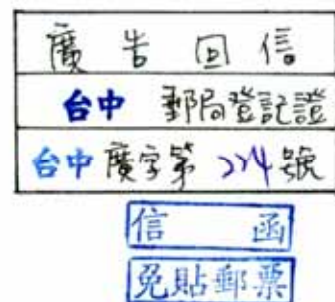 廣告回信
台中郵局登記證
台中廣字第224號
信函
免貼郵票